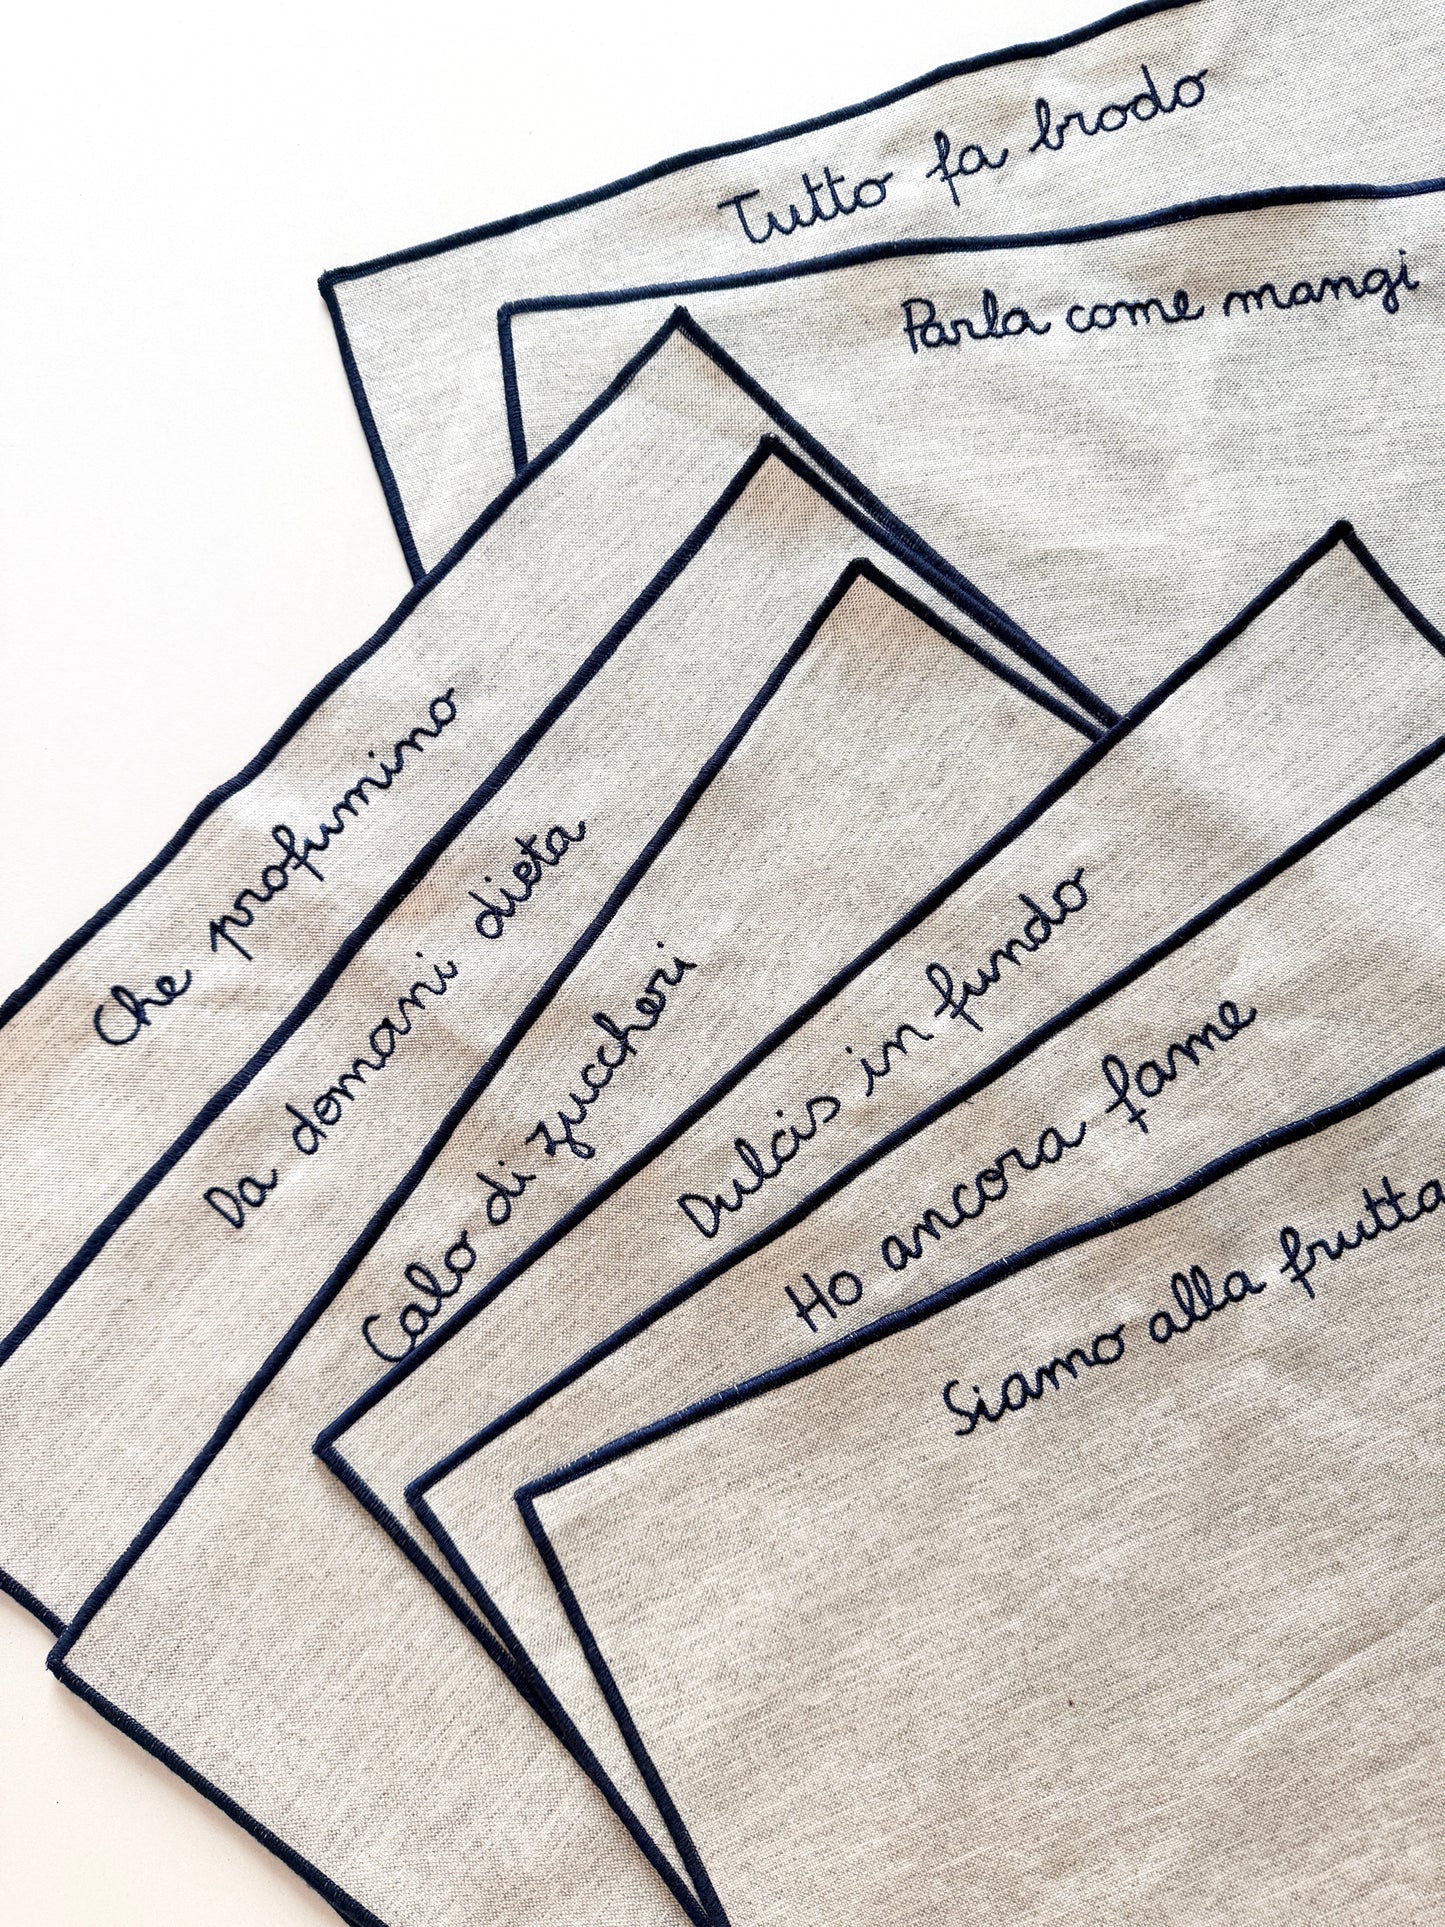 Tutto fa brodo
Parla come mangi
Che profumino
Da domani dieta
Calo di zuccheri
Dulcis in fundo
Ho ancora fame
Siamo alla frutta